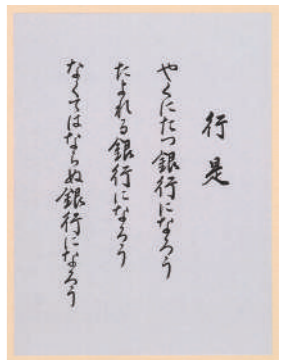 行是
やくにたつ銀行になろう
たよれる銀行になろう
なくてはならぬ銀行になろう